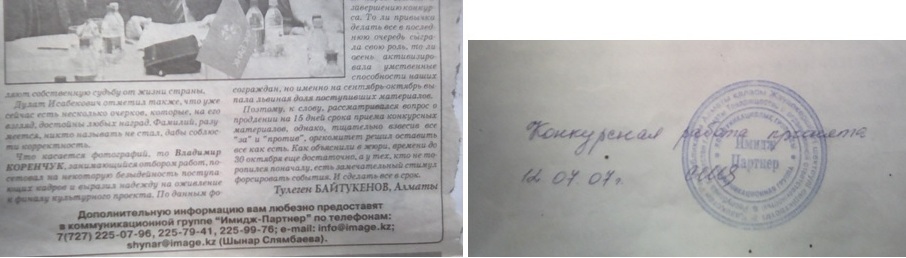 завершению конкур-
са. То ли привычка
делать все в послед-
нюю очередь сыгра-
ла свою роль, то ли
осень активизиро-
вала умственные
способности наших
ляют собственную судьбу от жизни страны.
Дулат Исабекович отметил также, что уже
сейчас есть несколько очерков, которые, на его
взгляд, достойны любых наград. Фамилий, разу-
меется, никто называть не стал, дабы соблюс-
ти корректность.
Что касается фотографий, то Владимир
КОРЕНЧУК, занимающийся отбором работ, по-
сетовал на некоторую безыдейность поступа-
ющих кадров и выразил надежду на оживление
к финалу культурного проекта. По данным фо-
сограждан, но именно на сентябрь-октябрь вы-
пала львиная доля поступивших материалов.
Поэтому, к слову, рассматривался вопрос о
продлении на 15 дней срока приема конкурсных
материалов, однако, тщательно взвесив все
"за" и "против", оргкомитет решил оставить
все как есть. Как объяснили в жюри, времени до
30 октября еще достаточно, а у тех, кто не то-
ропился поначалу, есть замечательный стимул
форсировать события. И сделать все в срок.
Тулеген БАЙТУКЕНОВ, Алматы
Дополнительную информацию вам любезно предоставят
в коммуникационной группе "Имидж-Партнер" по телефонам:
7(727) 225-07-96, 225-79-41, 225-99-76; e-mail: info@image.kz;
shynar@image.kz (Шынар Слямбаева).
Конкурсная работа принята
12.07.07г.
Имидж
Партнер